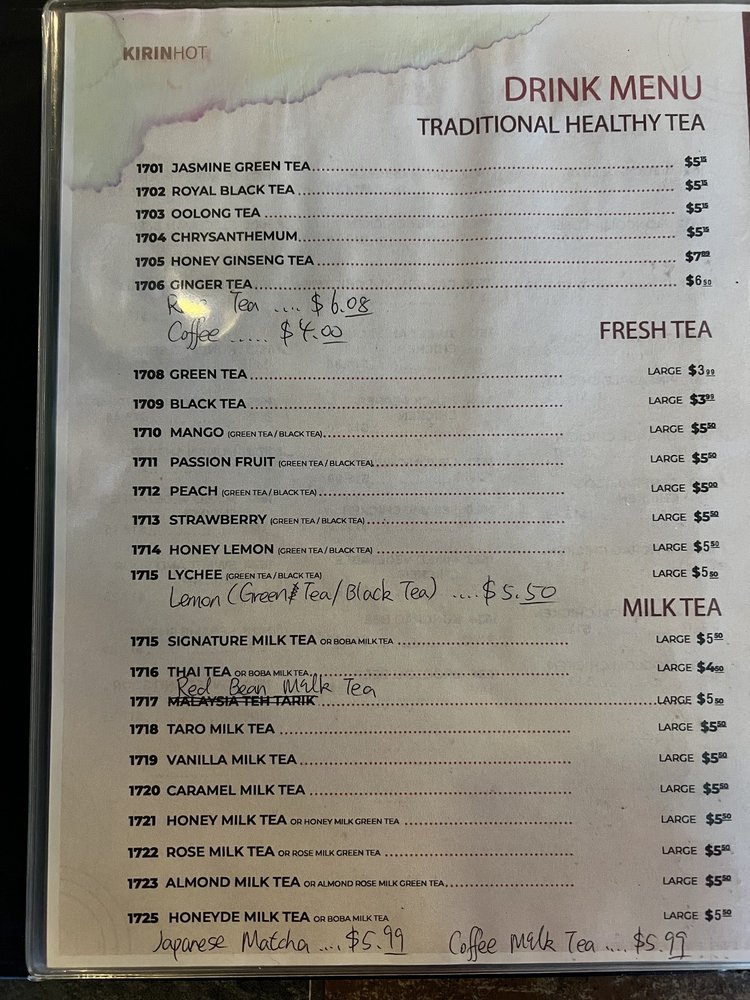 KIRINHOT
DRINK MENU
TRADITIONAL HEALTHY TEA
1701 JASMINE GREEN TEA $5.15
1702 ROYAL BLACK TEA $5.15
1703 OOLONG TEA $5.15
1704 CHRYSANTHEMUM $5.15
1705 HONEY GINSENG TEA $7.89
1706 GINGER TEA $6.50
Tea .... $6.08
Coffee ..... $4.00
FRESH TEA
1708 GREEN TEA LARGE $3.99
1709 BLACK TEA LARGE $3.99
1710 MANGO (GREEN TEA / BLACK TEA) LARGE $5.50
1711 PASSION FRUIT (GREEN TEA / BLACK TEA) LARGE $5.50
1712 PEACH (GREEN TEA / BLACK TEA) LARGE $5.00
1713 STRAWBERRY (GREEN TEA / BLACK TEA) LARGE $5.50
1714 HONEY LEMON (GREEN TEA / BLACK TEA) LARGE $5.50
1715 LYCHEE (GREEN TEA / BLACK TEA) LARGE $5.50
Lemon (Green Tea/Black Tea) .... $5.50
MILK TEA
1715 SIGNATURE MILK TEA OR BOBA MILK TEA LARGE $5.50
1716 THAI TEA OR BOBA MILK TEA LARGE $4.50
Red Bean Milk Tea
1717 MALAYSIA TEH TARIK LARGE $5.50
1718 TARO MILK TEA LARGE $5.50
1719 VANILLA MILK TEA LARGE $5.50
1720 CARAMEL MILK TEA LARGE $5.50
1721 HONEY MILK TEA OR HONEY MILK GREEN TEA LARGE $5.50
1722 ROSE MILK TEA OR ROSE MILK GREEN TEA LARGE $5.50
1723 ALMOND MILK TEA OR ALMOND ROSE MILK GREEN TEA LARGE $5.50
1725 HONEYDE MILK TEA OR BOBA MILK TEA LARGE $5.50
Japanese Matcha .... $5.99 Coffee Milk Tea .... $5.99